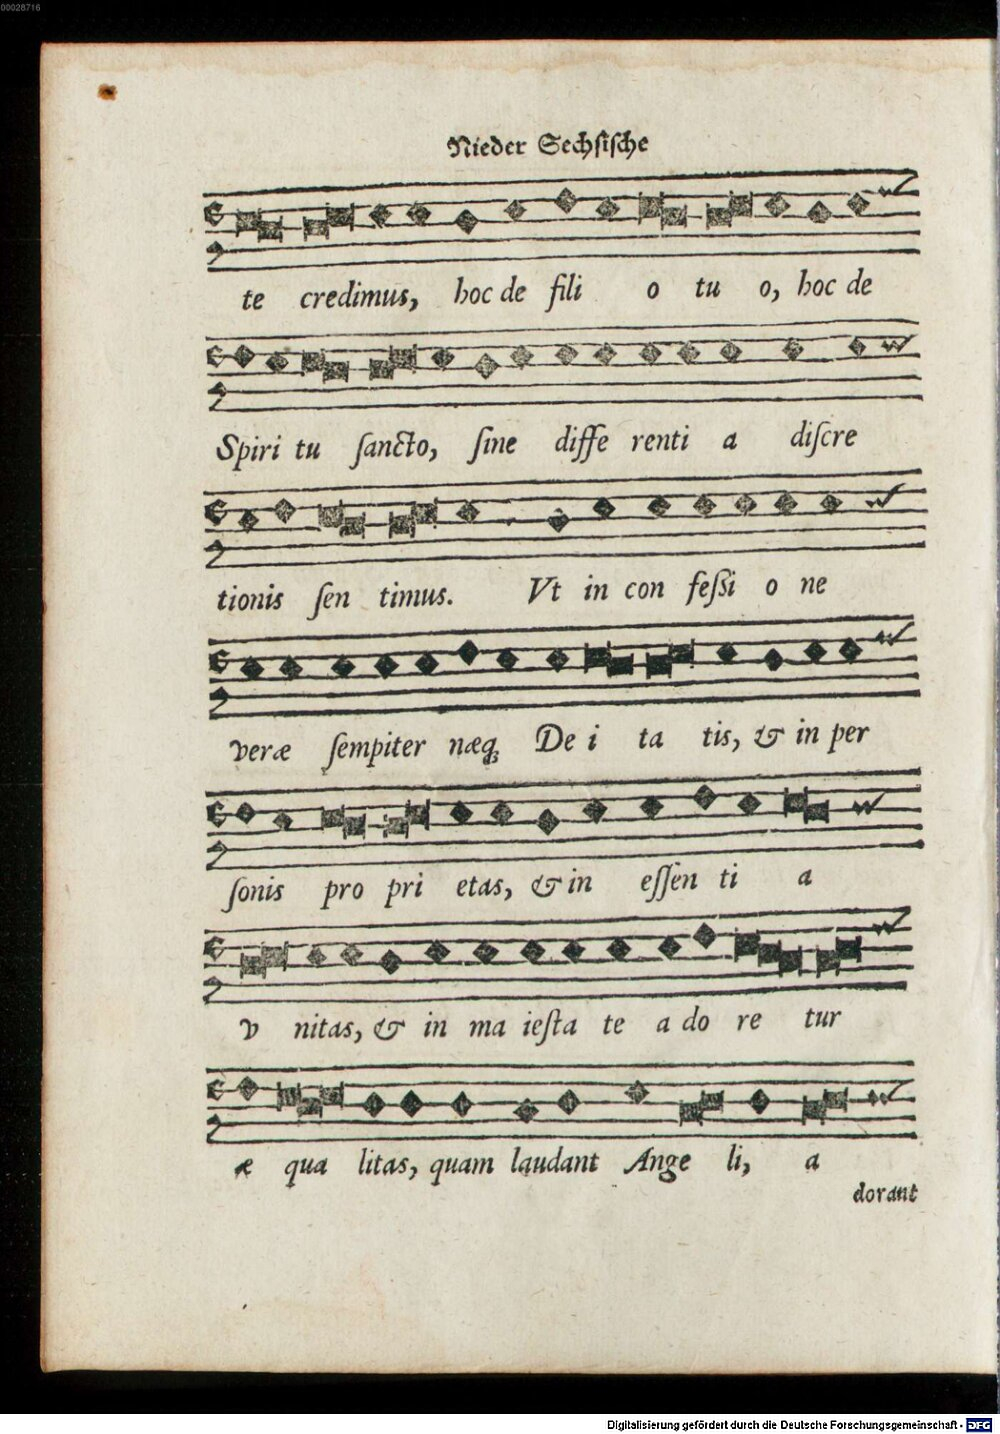 00028716
Nieder Sechſiſche
te credimus, hoc de fili o tu o, hoc de
Spiri tu ſancto, ſine diffe renti a diſcre
tionis ſen timus. Vt in con feſſi o ne
veræ ſempiter næq́ꝫ De i ta tis, & in per
ſonis pro pri etas, & in eſſen ti a
v nitas, & in ma ieſta te a do re tur
æ qua litas, quam laudant Ange li, a
dorant
Digitalisierung gefördert durch die Deutsche Forschungsgemeinschaft - DFG